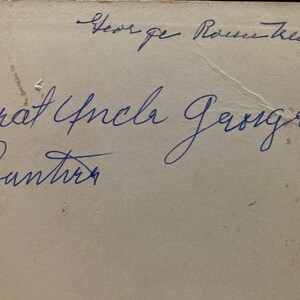 George Rountree
reat Uncle George
Rountree